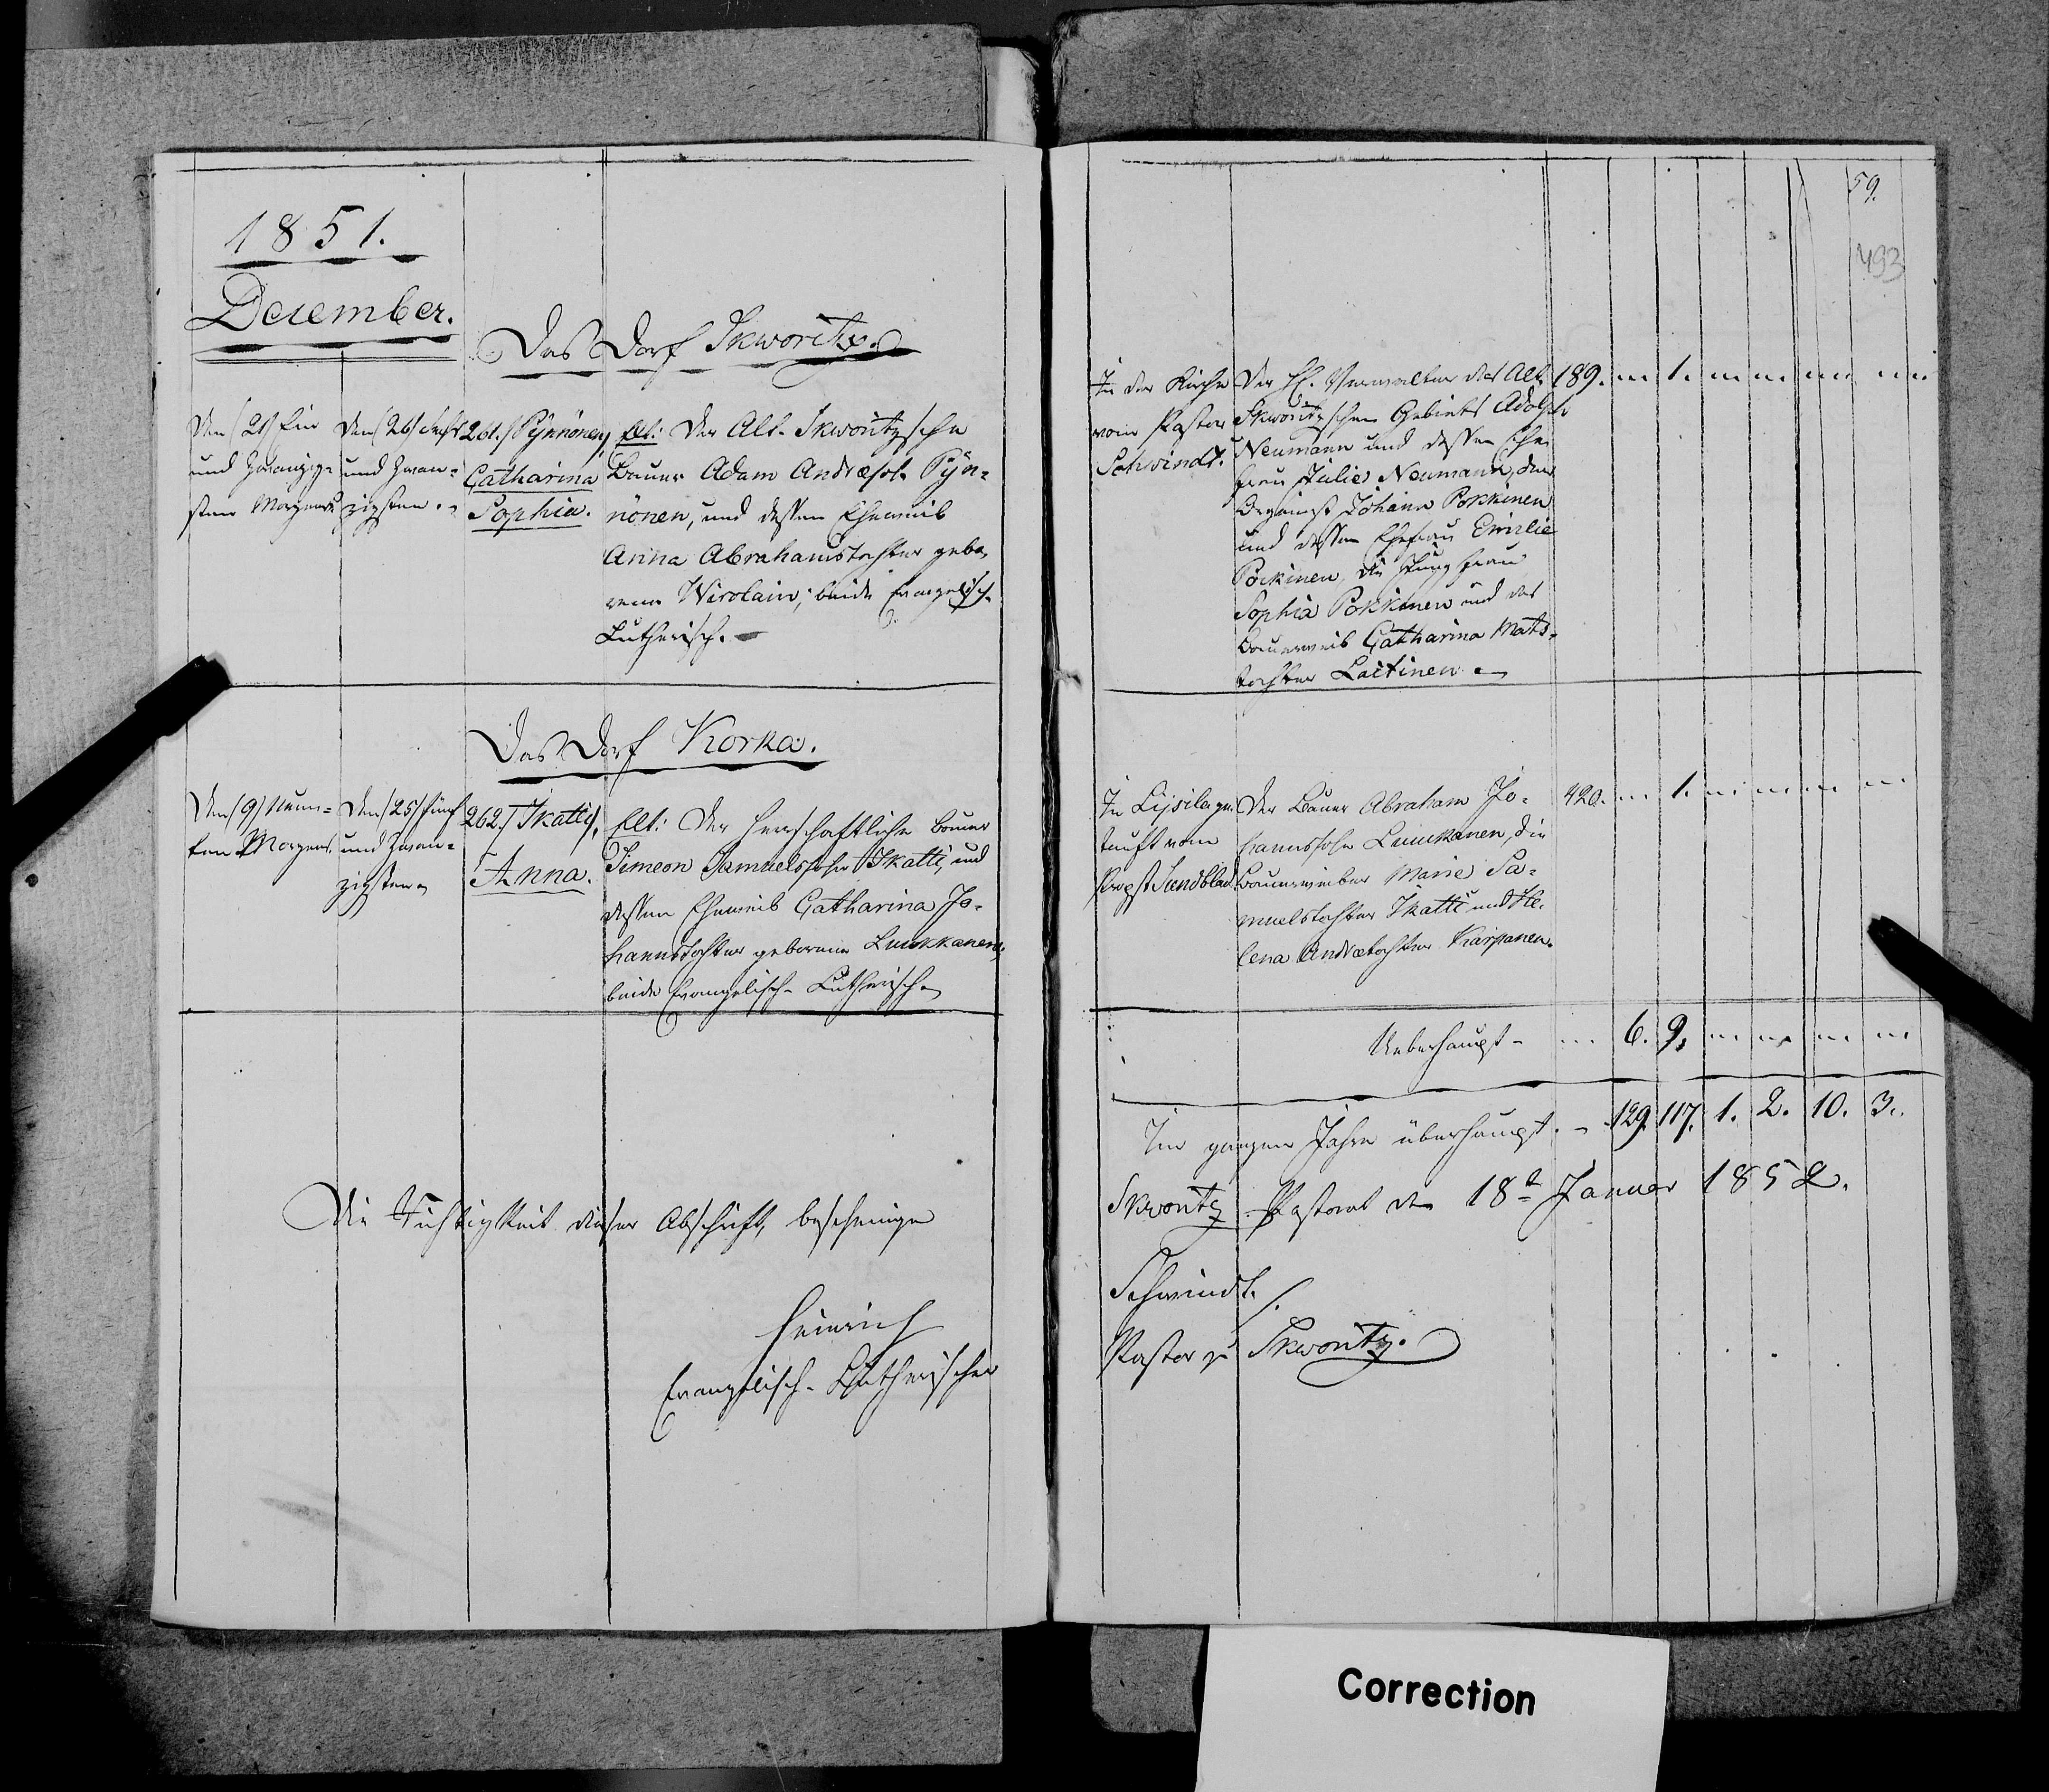 1851.
December.
Das Dorf Skworitz.
Den (21) Ein
und zwanzig-
sten Morgens
Den (26) sechs
und zwan-
zigsten.
261. (Pynnönen)
Catharina
Sophia.
Elt: Der Alt-Skworitzsche
Bauer Adam Andreæsohn Pyn-
nönen, und dessen Eheweib
Anna Abrahamstochter gebo-
rene Wirolain; beide Evangelisch-
Lutherisch.
Das Dorf Korka.
Den (9) Neun-
ten Morgens.
Den (25) fünf
und zwan-
zigsten
262. (Skatti),
Anna.
Elt: Der herrschaftliche Bauer
Simeon Samuelssohn Skatti, und
dessen Eheweib Catharina Jo-
hannstochter geborene Luukkanen,
beide Evangelisch-Lutherisch
Die Richtigkeit dieser Abschrift, bescheinige
Heinrich
Evangelisch-Lutherischer
59.
493
In der Kirche
vom Pastor
Schwindt.
Der H. Verwalter des Alt-
Skworitzschen Gebiets Adolph
Neumann und dessen Ehe-
frau Julie Neumann, der
Organist Johann Pokkinen
und dessen Ehefrau Emilie
Pokkinen, die Jungfrau
Sophia Pokkinen und das
Bauerweib Catharina Mats-
tochter Laitinen.
189. 1.
In Lijsila ge-
tauft vom
Propst Sendblad.
Der Bauer Abraham Jo-
hannssohn Luukkanen, die
Bauerweiber Marie Sa-
muelstochter Skatti und He-
lena Andreætochter Karpanen.
420. 1.
Ueberhaupt - 6. 9.
Im ganzen Jahre überhaupt. - 129. 117. 1. 2. 10. 3.
Skworitz-Pastorat den 18t Januar 1852.
Schwindt.
Pastor zu Skworitz.
Correction